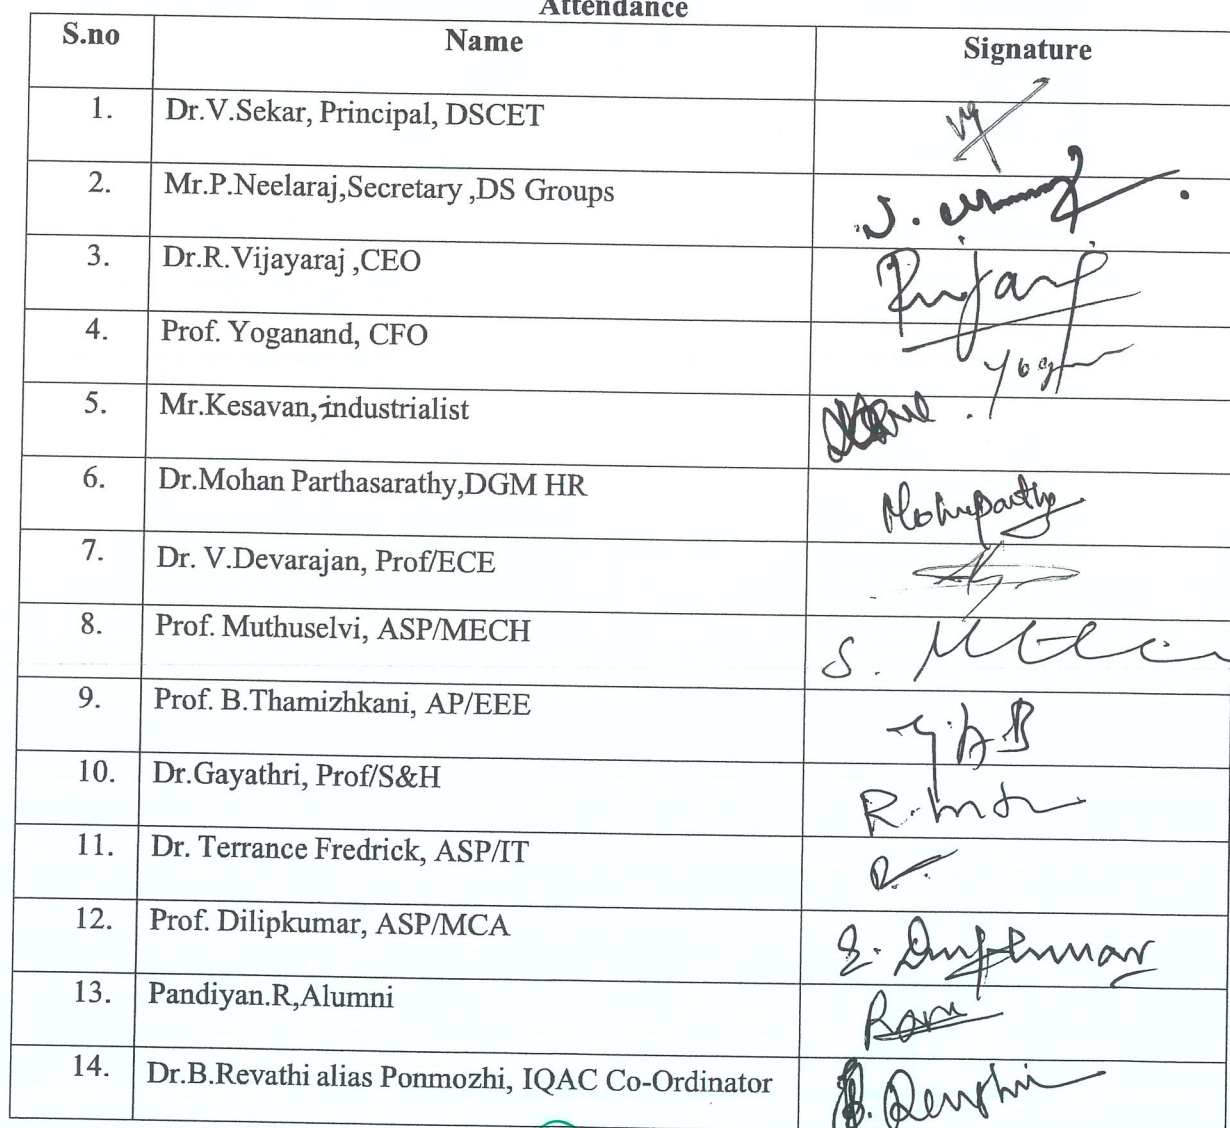 Attendance
S.no Name Signature
1. Dr.V.Sekar, Principal, DSCET
2. Mr.P.Neelaraj,Secretary ,DS Groups
3. Dr.R.Vijayaraj ,CEO
4. Prof. Yoganand, CFO
5. Mr.Kesavan,industrialist
6. Dr.Mohan Parthasarathy,DGM HR
7. Dr. V.Devarajan, Prof/ECE
8. Prof. Muthuselvi, ASP/MECH
9. Prof. B.Thamizhkani, AP/EEE
10. Dr.Gayathri, Prof/S&H
11. Dr. Terrance Fredrick, ASP/IT
12. Prof. Dilipkumar, ASP/MCA
13. Pandiyan.R,Alumni
14. Dr.B.Revathi alias Ponmozhi, IQAC Co-Ordinator